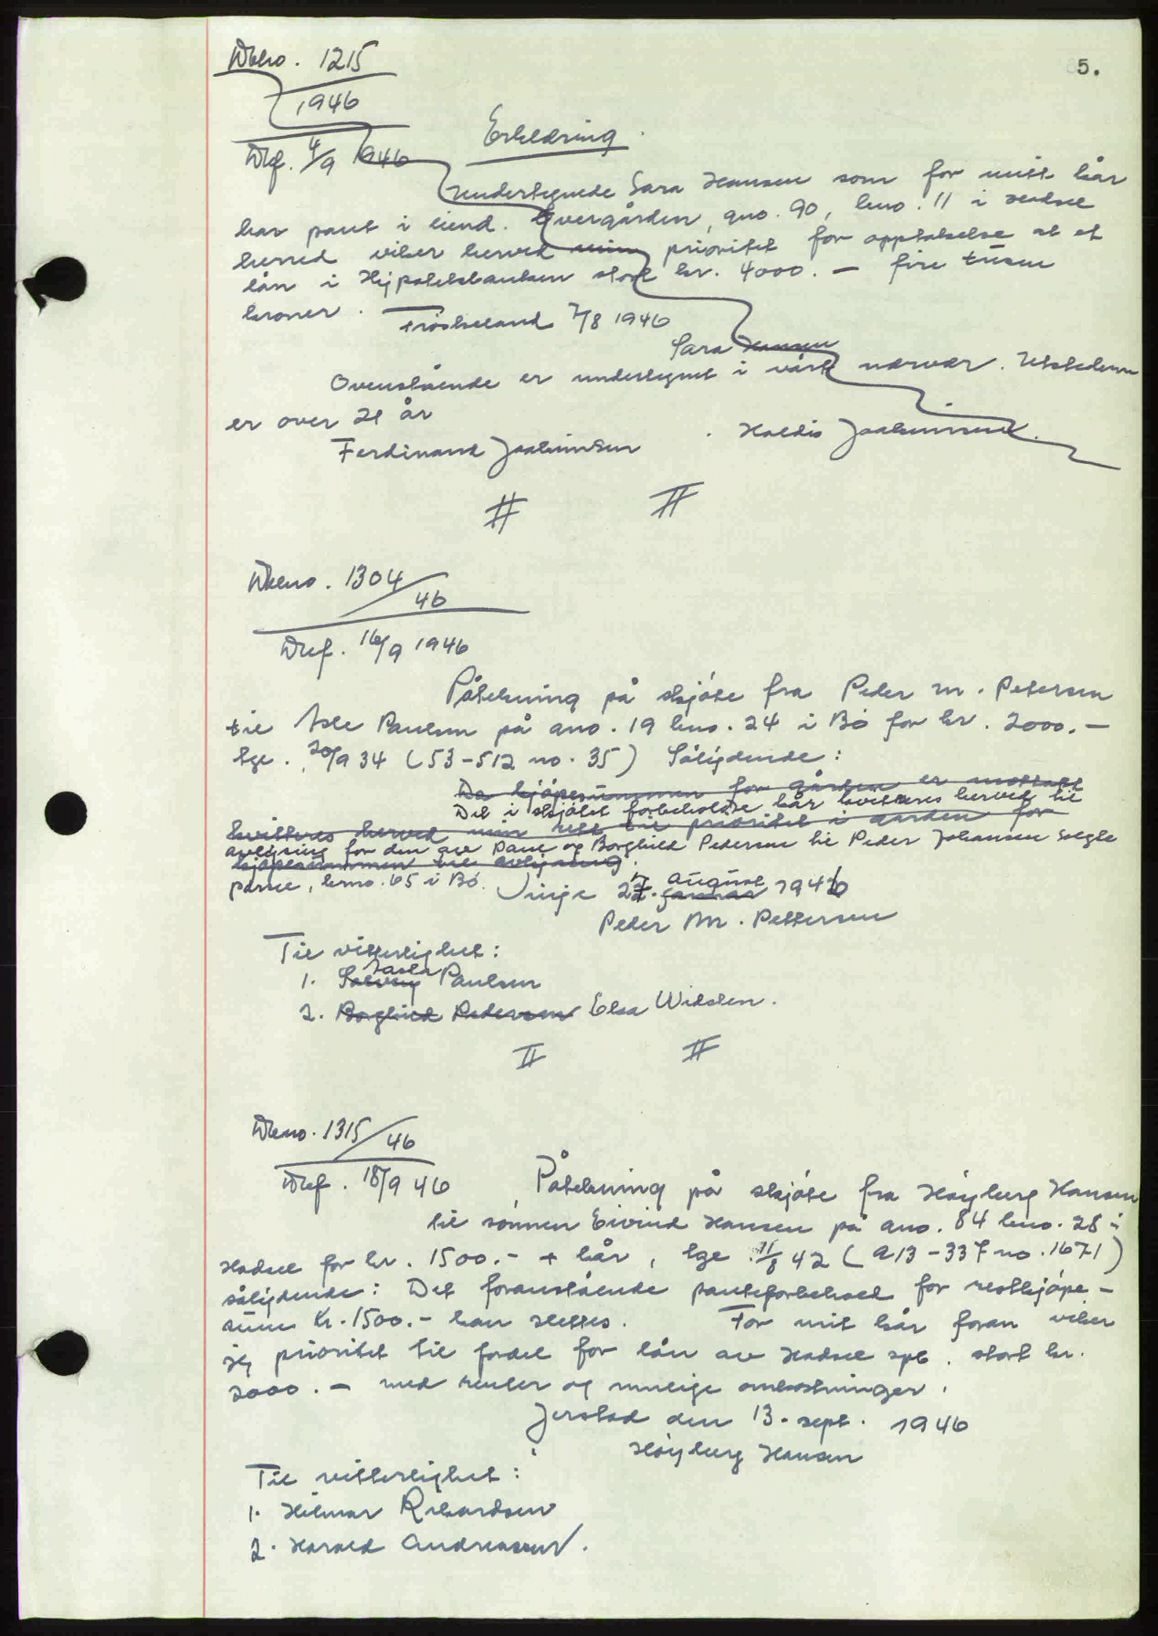 5.
Dbno. 1215
1946
Dbf. 4/9 1946
Erklæring.
Undertegnede Sara Hansen som for mitt kår
har pant i eiend. Øvergården, gno. 90, bno. 11 i Hadsel
herred viker herved min prioritet for opptakelse at et
lån i Hypotekbanken stort kr. 4000.- fire tusen
kroner.
Frøskeland 7/8 1946
Sara Hansen
Ovenstående er undertegnet i vårt nærvær. Utstederen
er over 21 år
Ferdinand Joakimsen. Haldis Joakimsen.
# #
Dbno. 1304/46
Dbf. 16/9 1946
Påtekning på skjøte fra Peder M. Petersen
til Asle Paulsen på gno. 19 bno. 24 i Bø for kr. 2000.-
tgl. 20/9 34 (53-512 no. 35) Sålydende:
De kjøpesummen for gården er mottatt
Det i skjøtet forbeholdte kår kvitteres herved til
kvitteres herved min rett til prioritet i garden for
avlysing for den av Dane og Borghild Pedersen til Peder Johansen solgte
kjøpesummen til avlysing.
parsel, bno. 65 i Bø.
Vinje 27. januar august 1946
Peder M. Pettersen
Til vitterlighet:
1. Solveig Paulsen
2. Borghild Pedersen Elsa Widsten.
# #
Dbno. 1315/46
Dbf. 18/9 46
Påtekning på skjøte fra Høyberg Hansen
til sønnen Eivind Hansen på gno. 84 bno. 28 i
Hadsel for kr. 1500.- + kår, tgl. 11/8 42 (A13-337 no. 1671)
sålydende: Det foranstående panteforbehold for restkjøpe-
sum kr. 1500.- kan slettes. For mit kår foran viker
jeg prioritet til fordel for lån av Hadsel spb. stort kr.
2000.- med renter og mulige omkostninger.
Jerstad den 13. sept. 1946
Høyberg Hansen
Til vitterlighet:
1. Hilmar Rikardsen
2. Harald Andreassen.